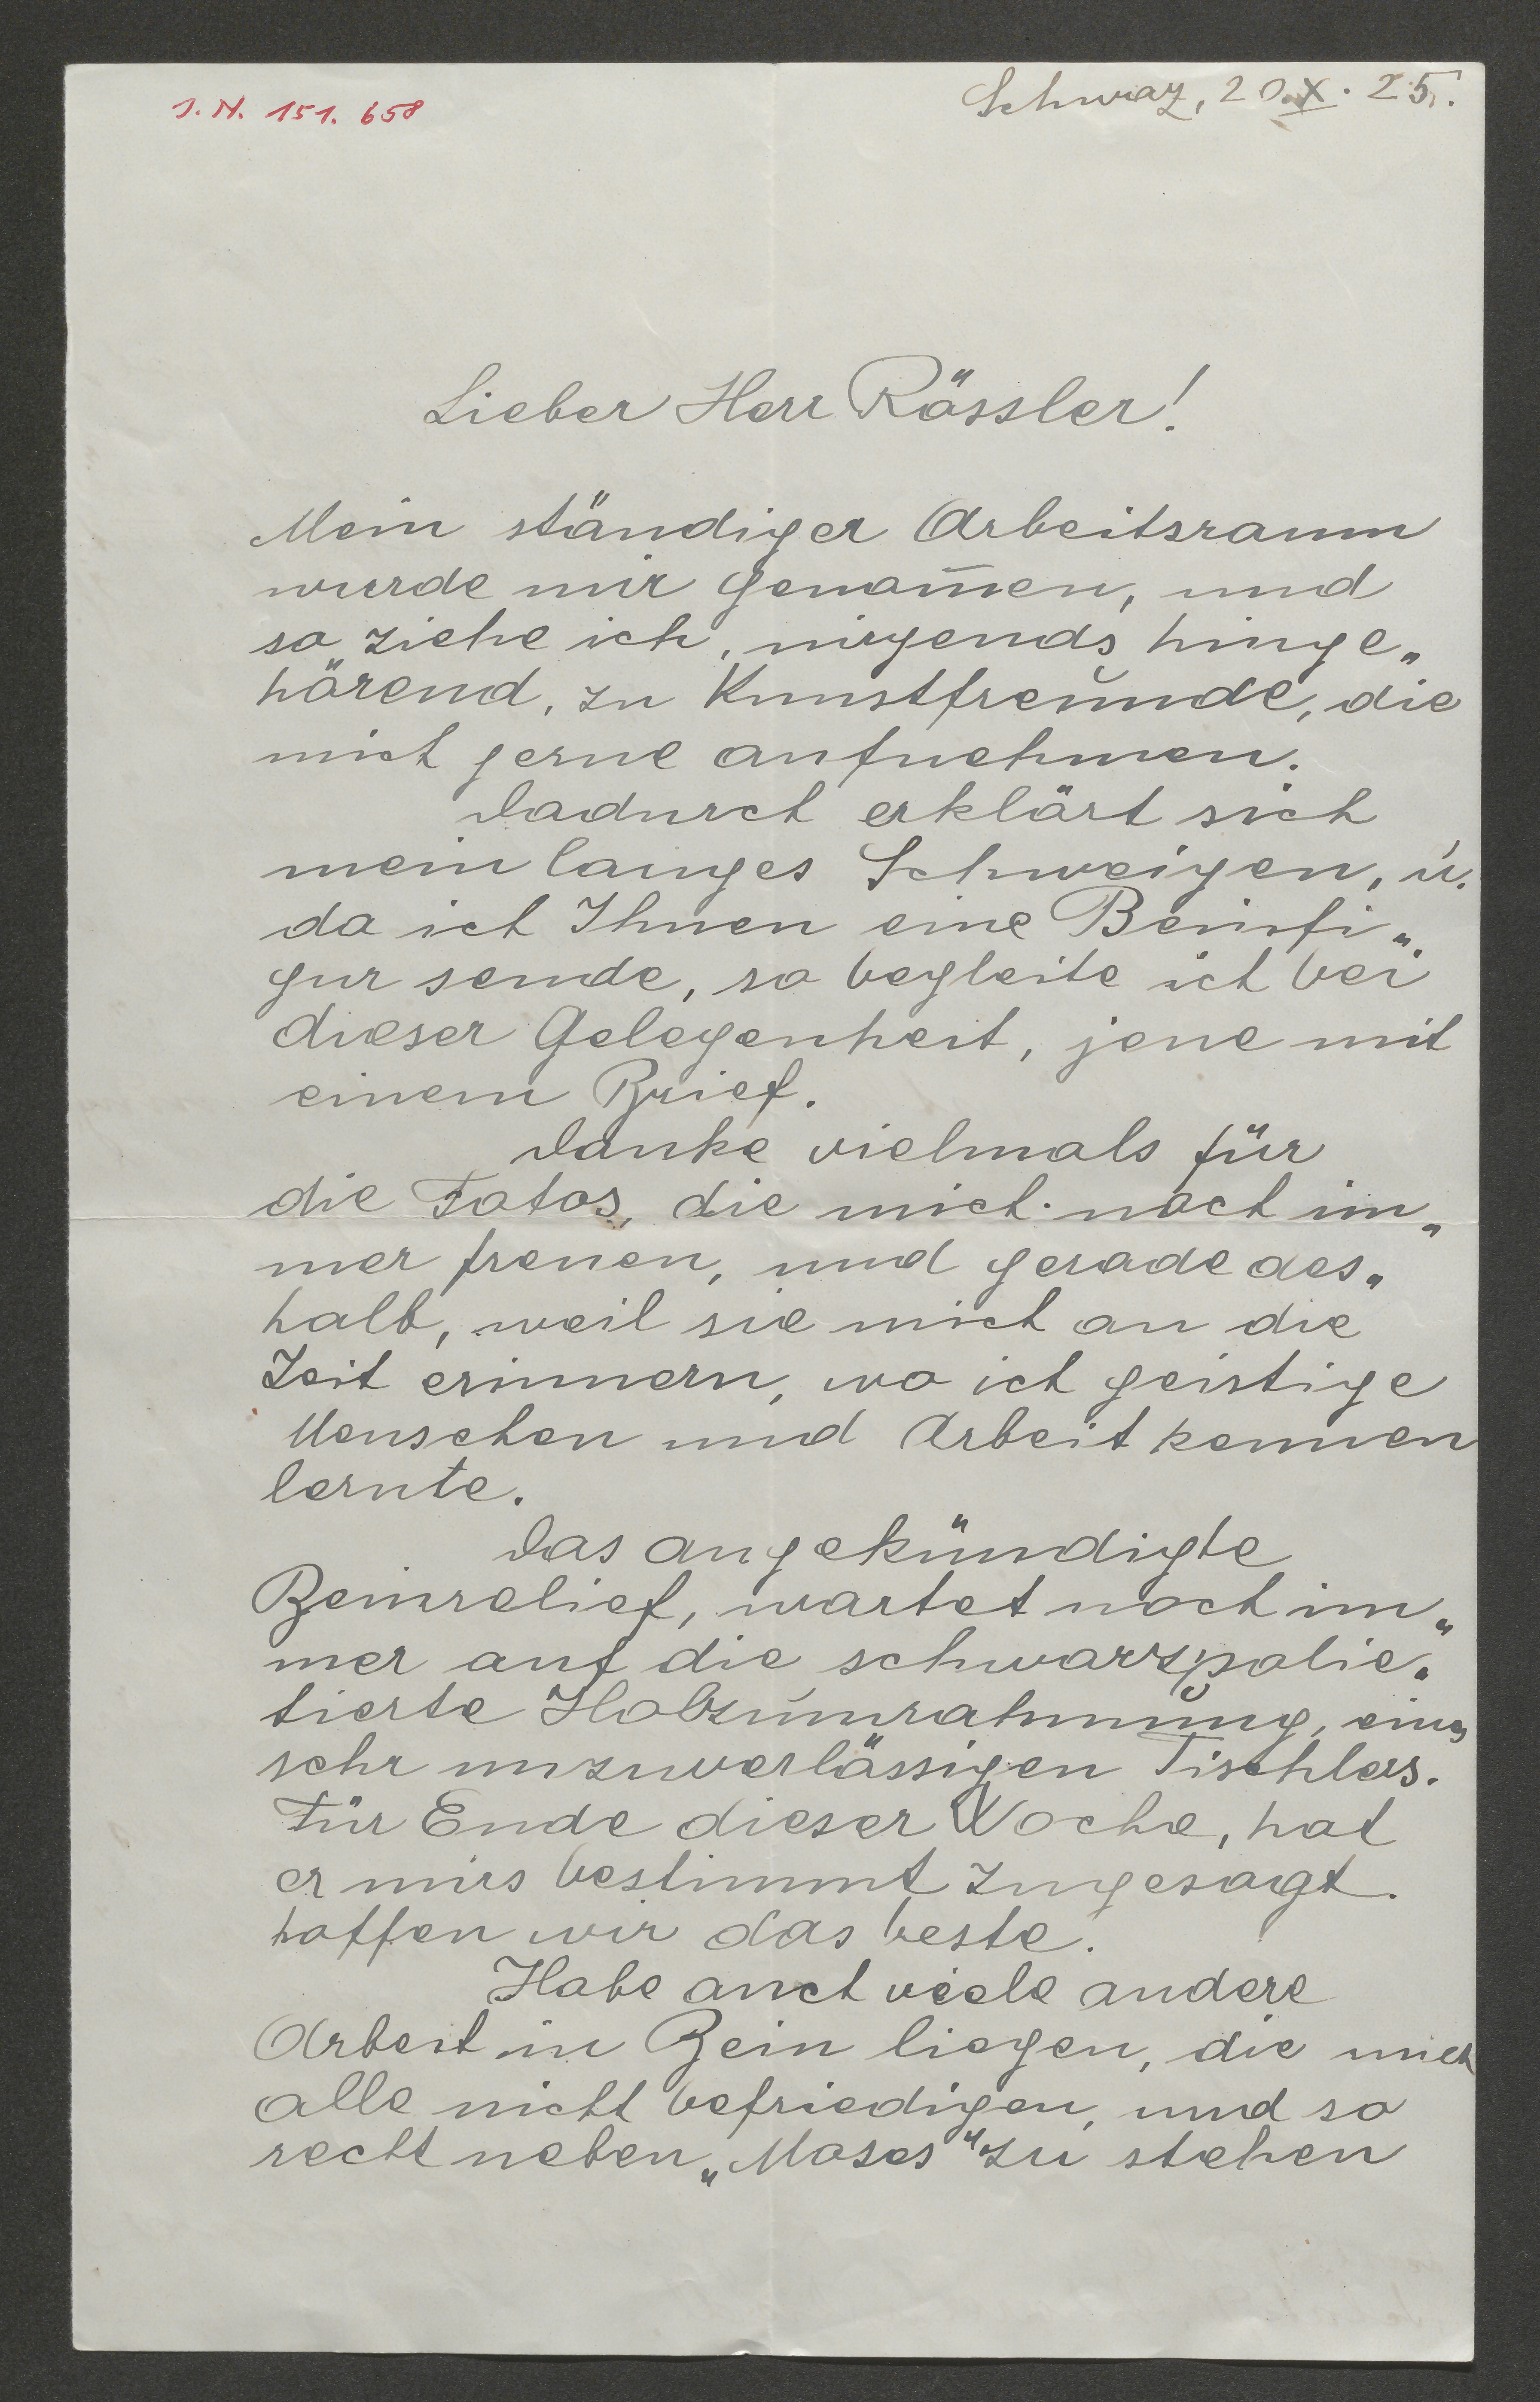 J. N. 151. 658
Schwaz, 20.X. 25.
Lieber Herr Rössler!
Mein ständiger Arbeitsraum
wurde mir genom̅en, und
so ziehe ich, nirgends hinge„
hörend, zu Kunstfreunde, die
mich gerne aufnehmen.
Dadurch erklärt sich
mein langes Schweigen, u.
da ich Ihnen eine Beinfi„
gur sende, so begleite ich bei
dieser Gelegenheit, jene mit
einem Brief.
Danke vielmals für
die Fotos, die mich noch im„
mer freuen, und gerade des„
halb, weil sie mich an die
Zeit erinnern, wo ich geistige
Menschen und Arbeit kennen
lernte.
Das angekündigte
Beinrelief, wartet noch im„
mer auf die schwarzpolie„
tierte Holzumrahmung, eines
sehr unzuverlässigen Tischlers.
Für Ende dieser Woche, hat
er mirs bestimmt zugesagt.
hoffen wir das beste.
Habe auch viele andere
Arbeit in Bein liegen, die mich
alle nicht befriedigen, und so
recht neben „Moses" zu stehen